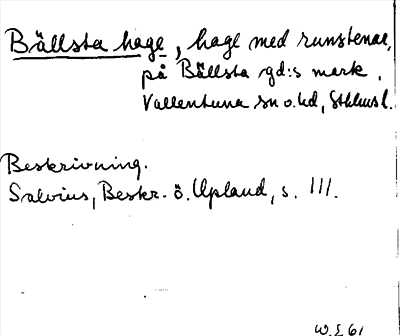 Bällsta hage, hage med runstenar,
på Bällsta gd:s mark,
Vallentuna sn o. hd, Sthlms l.
Beskrivning.
Salvius, Beskr. ö. Upland, s. 111.
W. E 61